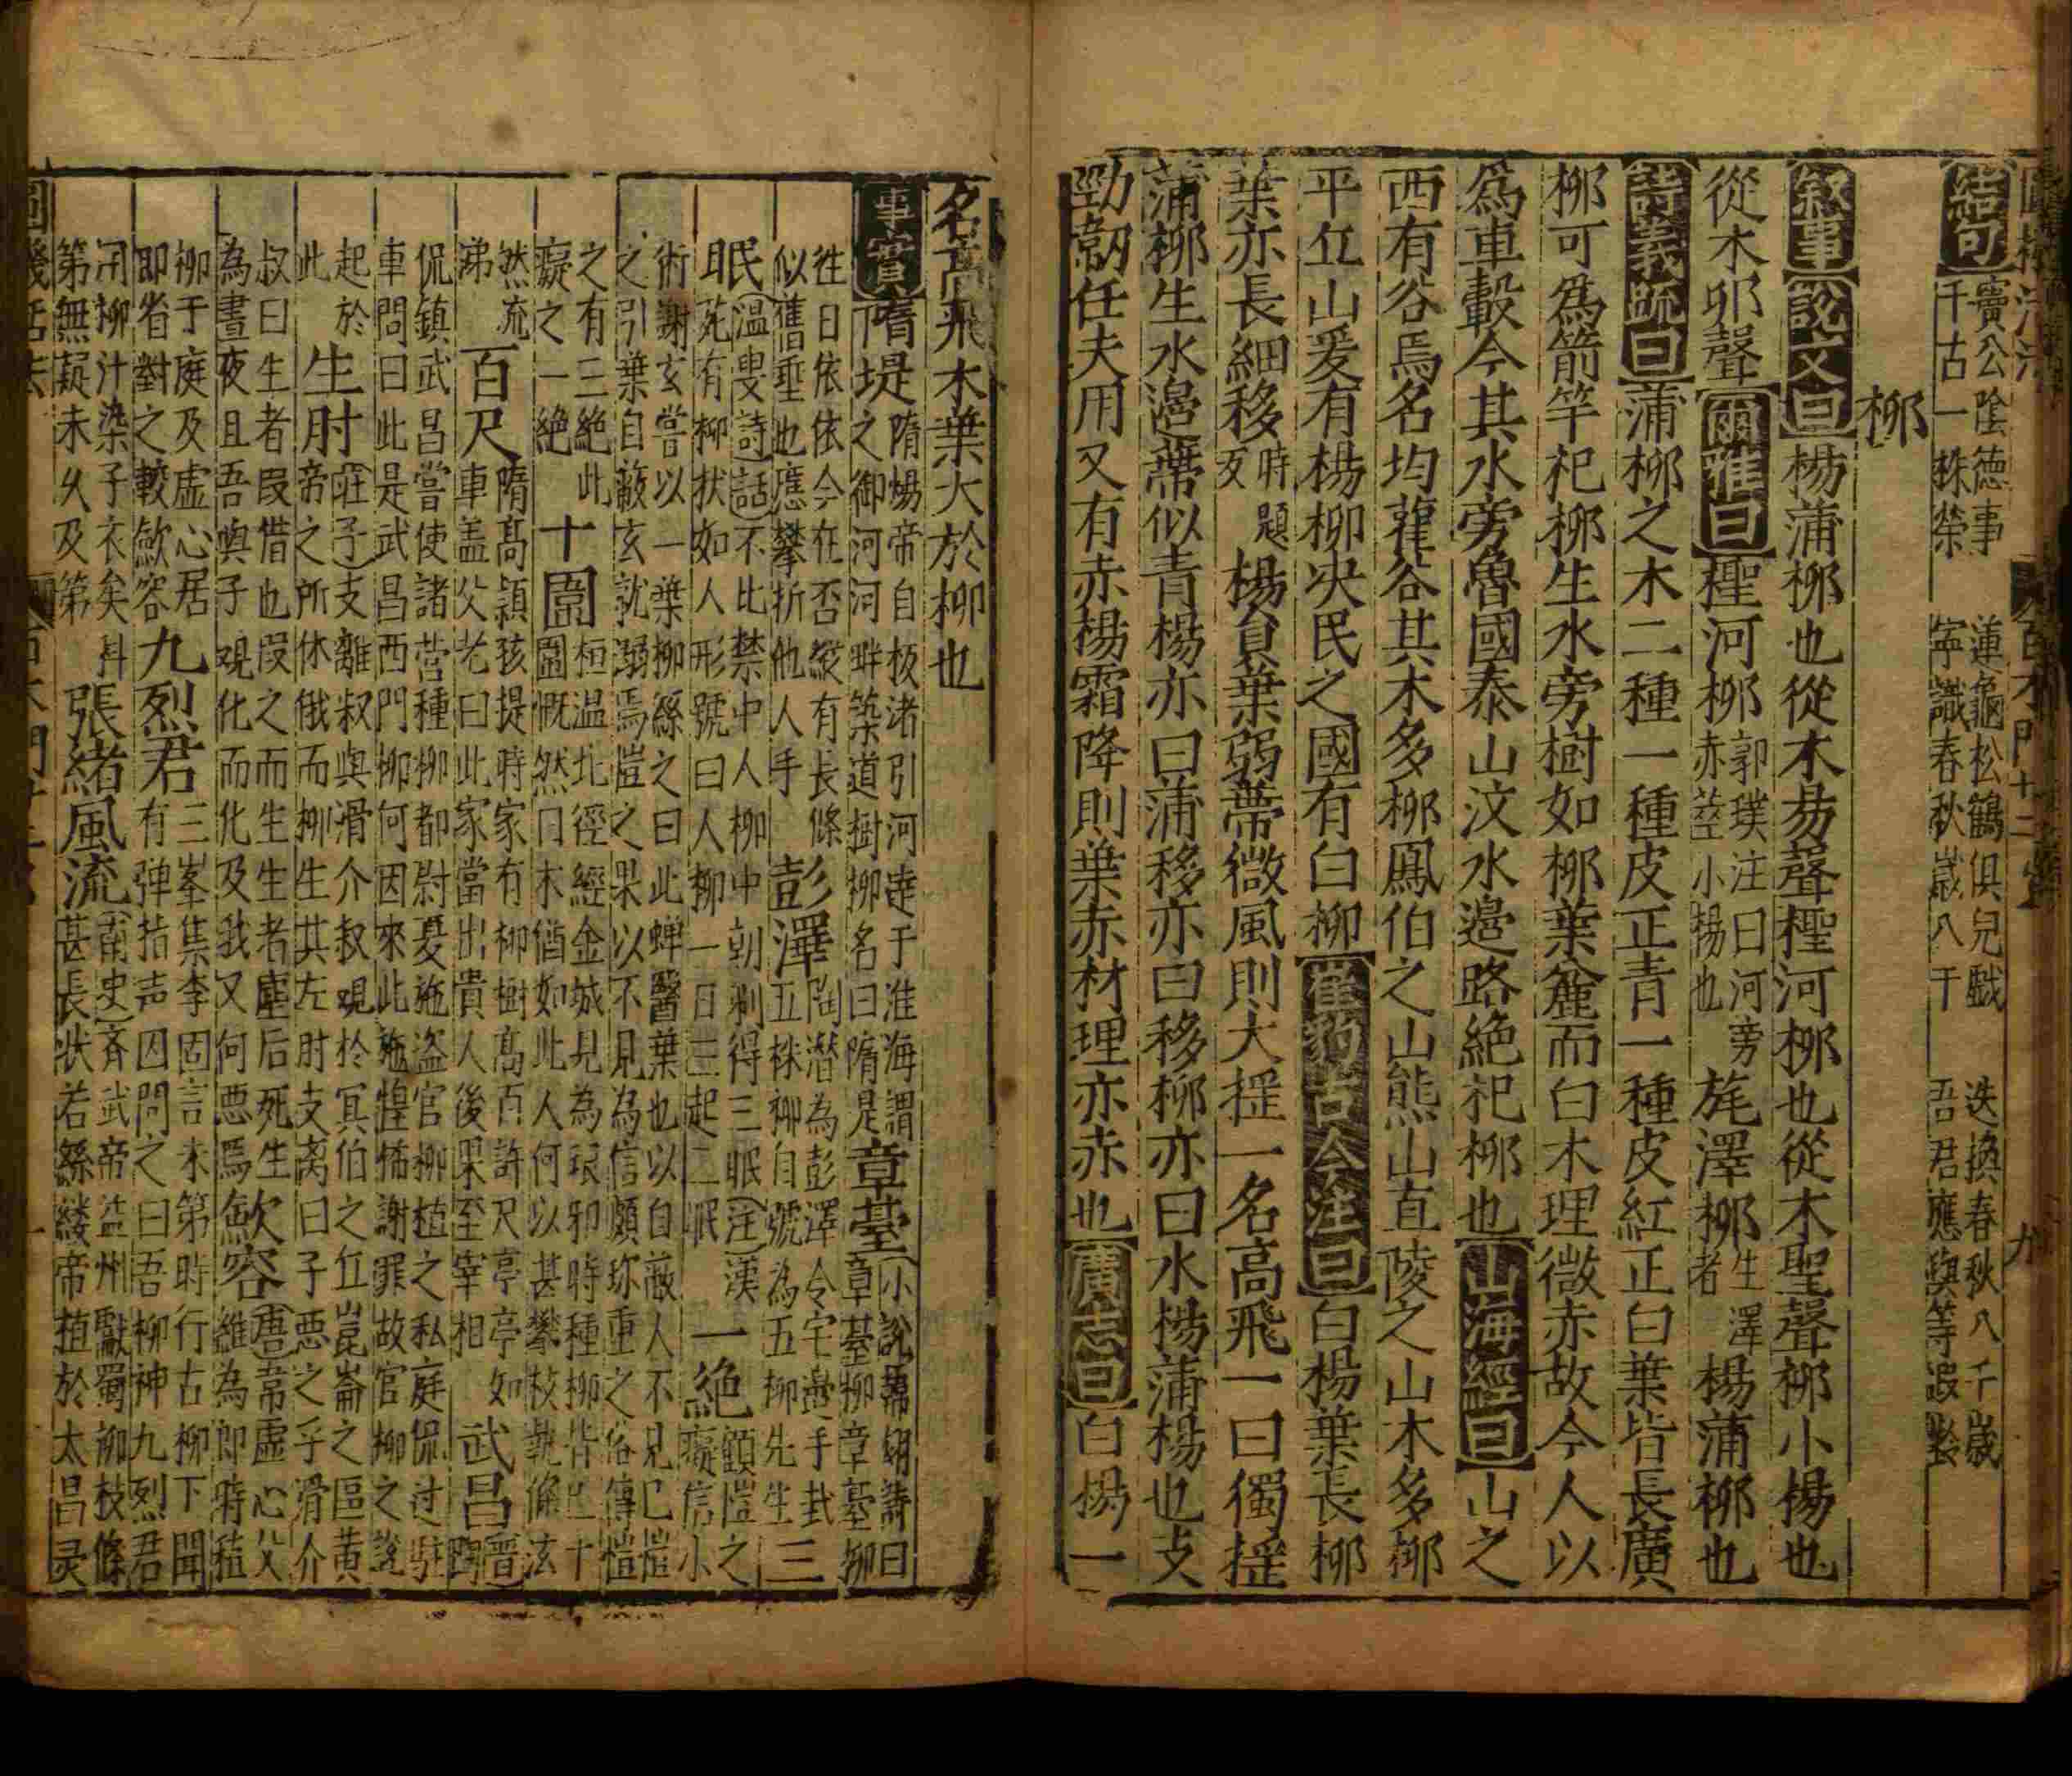 結句
竇公陰德事
千古一株榮
蓮龜松鶴俱兒戲
寧識春秋歲八千
迭換春秋八千歲
吾君應與等遐齡
柳
敘事 說文曰 楊蒲柳也從木昜聲檉河柳也從木聖聲桺小楊也
從木丣聲 爾雅曰 檉河柳 郭璞注曰河旁赤莖小楊也 旄澤柳 生澤者 楊蒲柳也
詩義疏曰 蒲柳之木二種一種皮正青一種皮紅正白葉皆長廣
柳可爲箭竿杞柳生水旁樹如柳葉麄而白木理微赤故今人以
爲車轂今其水旁魯國泰山汶水邉路絶杞柳也 山海經曰 山之
西有谷焉名均雚谷其木多柳鳳伯之山熊山直陵之山木多柳
平丘山爰有楊柳決民之國有白柳 崔豹古今注曰 白楊葉長柳
葉亦長細移 楊負葉弱蔕微風則大揺一名高飛一曰獨揺
蒲柳生水邉葉似青楊亦曰蒲移亦曰移柳亦曰水楊蒲楊也支
勁韌任夫用又有赤楊霜降則葉赤材理亦赤也 廣志曰 白楊一
名高飛木葉大於柳也
事實 隋堤 隋煬帝自板渚引河達于淮海謂
之御河河畔築道樹柳名曰隋是 章臺 小說韓翃詩曰
章臺柳章臺柳
徃日依依今在否縱有長條
似舊垂也應攀折他人手 彭澤 陶潛為彭澤令宅邉手封
五株柳自號為五柳先生 三
眠 溫叟詩話不比禁中人柳中朝剩得三眠注漢
苑有柳狀如人形號曰人柳一日三起二眠 一絶 顧愷之
癡信小
術謝玄嘗以一葉柳絲之曰此蟬翳葉也以自蔽人不見已愷
之引葉自蔽玄就溺焉愷之果以不見為信頗珎重之俗傳愷
之有三絶此
癡之一絶 十圍 桓温北徑經金城見為琅邪時種柳皆已十
圍慨然曰木猶如此人何以甚攀枝執條泫
然流
涕 百尺 隋髙頴孩提時家有柳樹髙百許尺亭亭如
車盖父老曰此家當出貴人後果至宰相 武昌 晋陶
侃鎮武昌嘗使諸营種柳都尉夏施盗官柳植之私庭侃过駐
車問曰此是武昌西門柳何因來此施惶怖謝罪故官柳之說
起於
此 生肘 莊子支離叔與滑介叔覌於冥伯之丘崑崙之區黄
帝之所休俄而柳生其左肘支离曰子悪之乎滑介
叔曰生者叚借也叚之而生生者塵后死生
為晝夜且吾與子覌化而化及我又何悪焉 歛容 唐常虛心父
維為郎時植
柳于庭及虛心居
即省對之輙歛容 九烈君 三峯集李固言未第時行古柳下聞
有弹指声囚問之曰吾柳神九烈君
用柳汁染子衣矣科
第無疑未乆及第 張緒風流 南史齐武帝益州獻蜀柳枝條
甚長狀若絲縷帝植於太昌灵